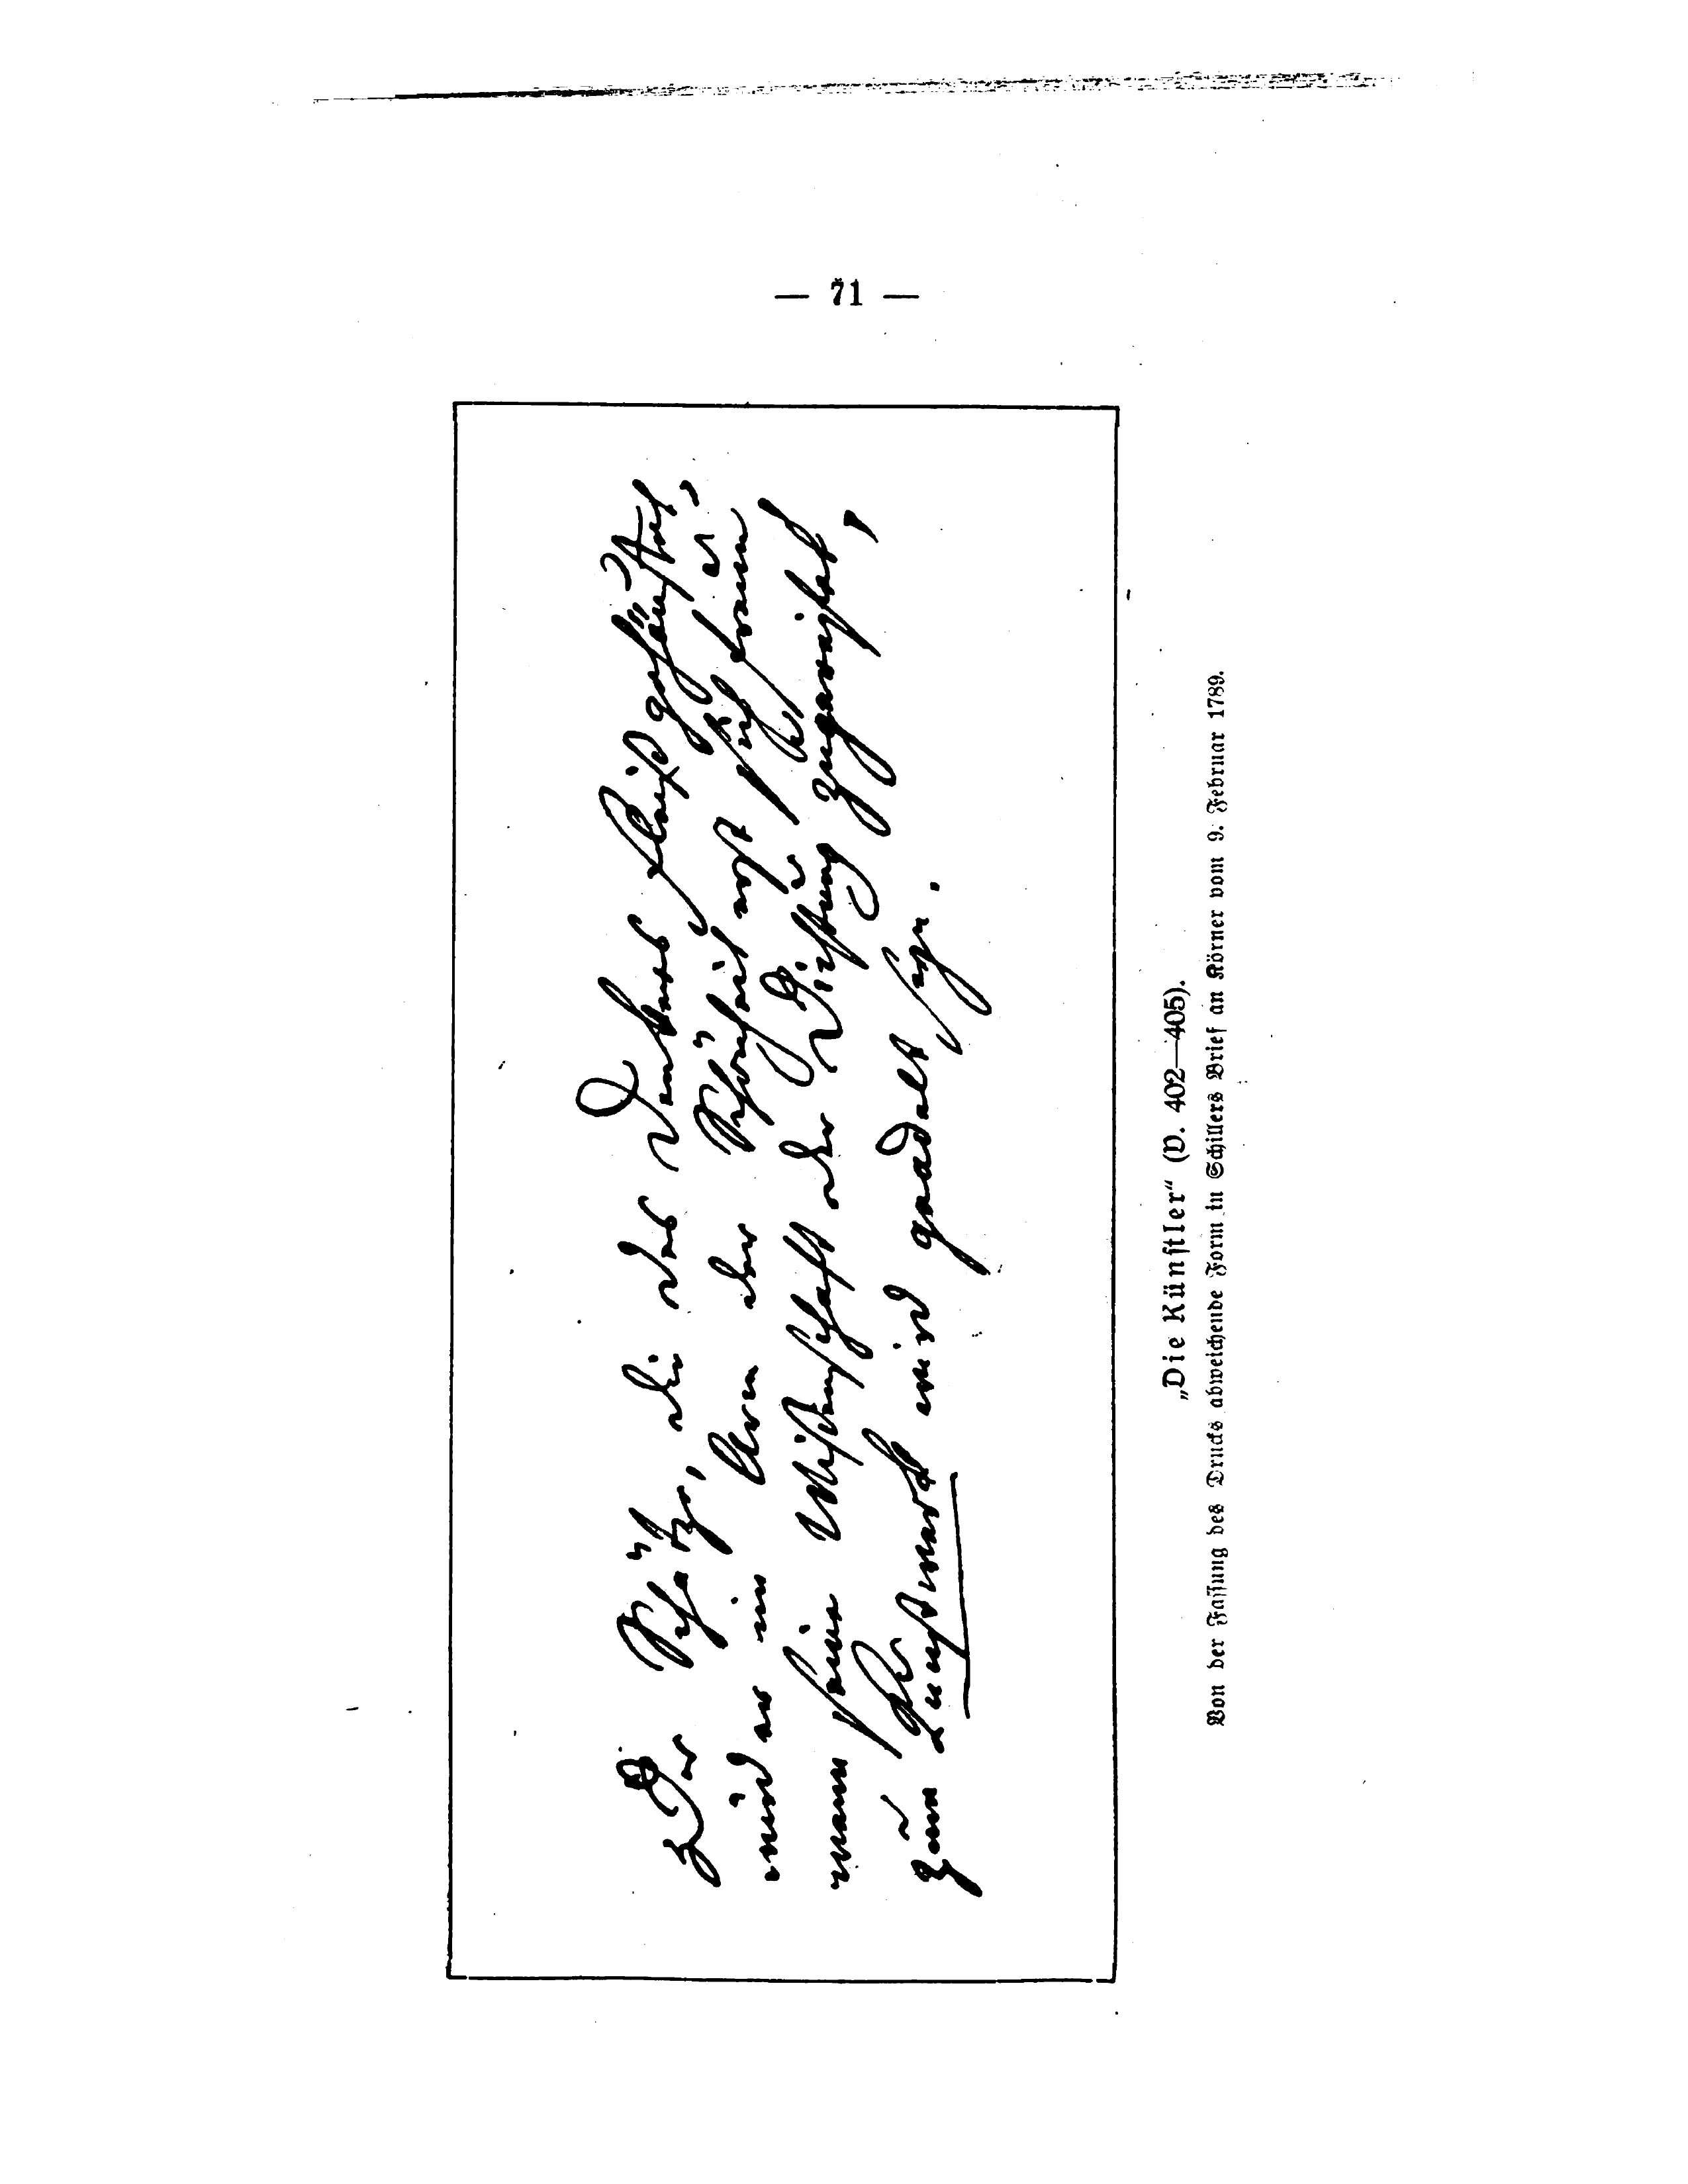 — 71 —
Der Schätze, die des Denkers Fleiß gehäufet,
wird er im Arm der Schönheit erst sich freun,
wenn seine Wißenschaft der Dichtung zugereifet,
zum Kunstwerk wird geadelt seyn.
„Die Künstler“ (V. 402—405).
Von der Fassung des Drucks abweichende Form in Schillers Brief an Körner vom 9. Februar 1789.